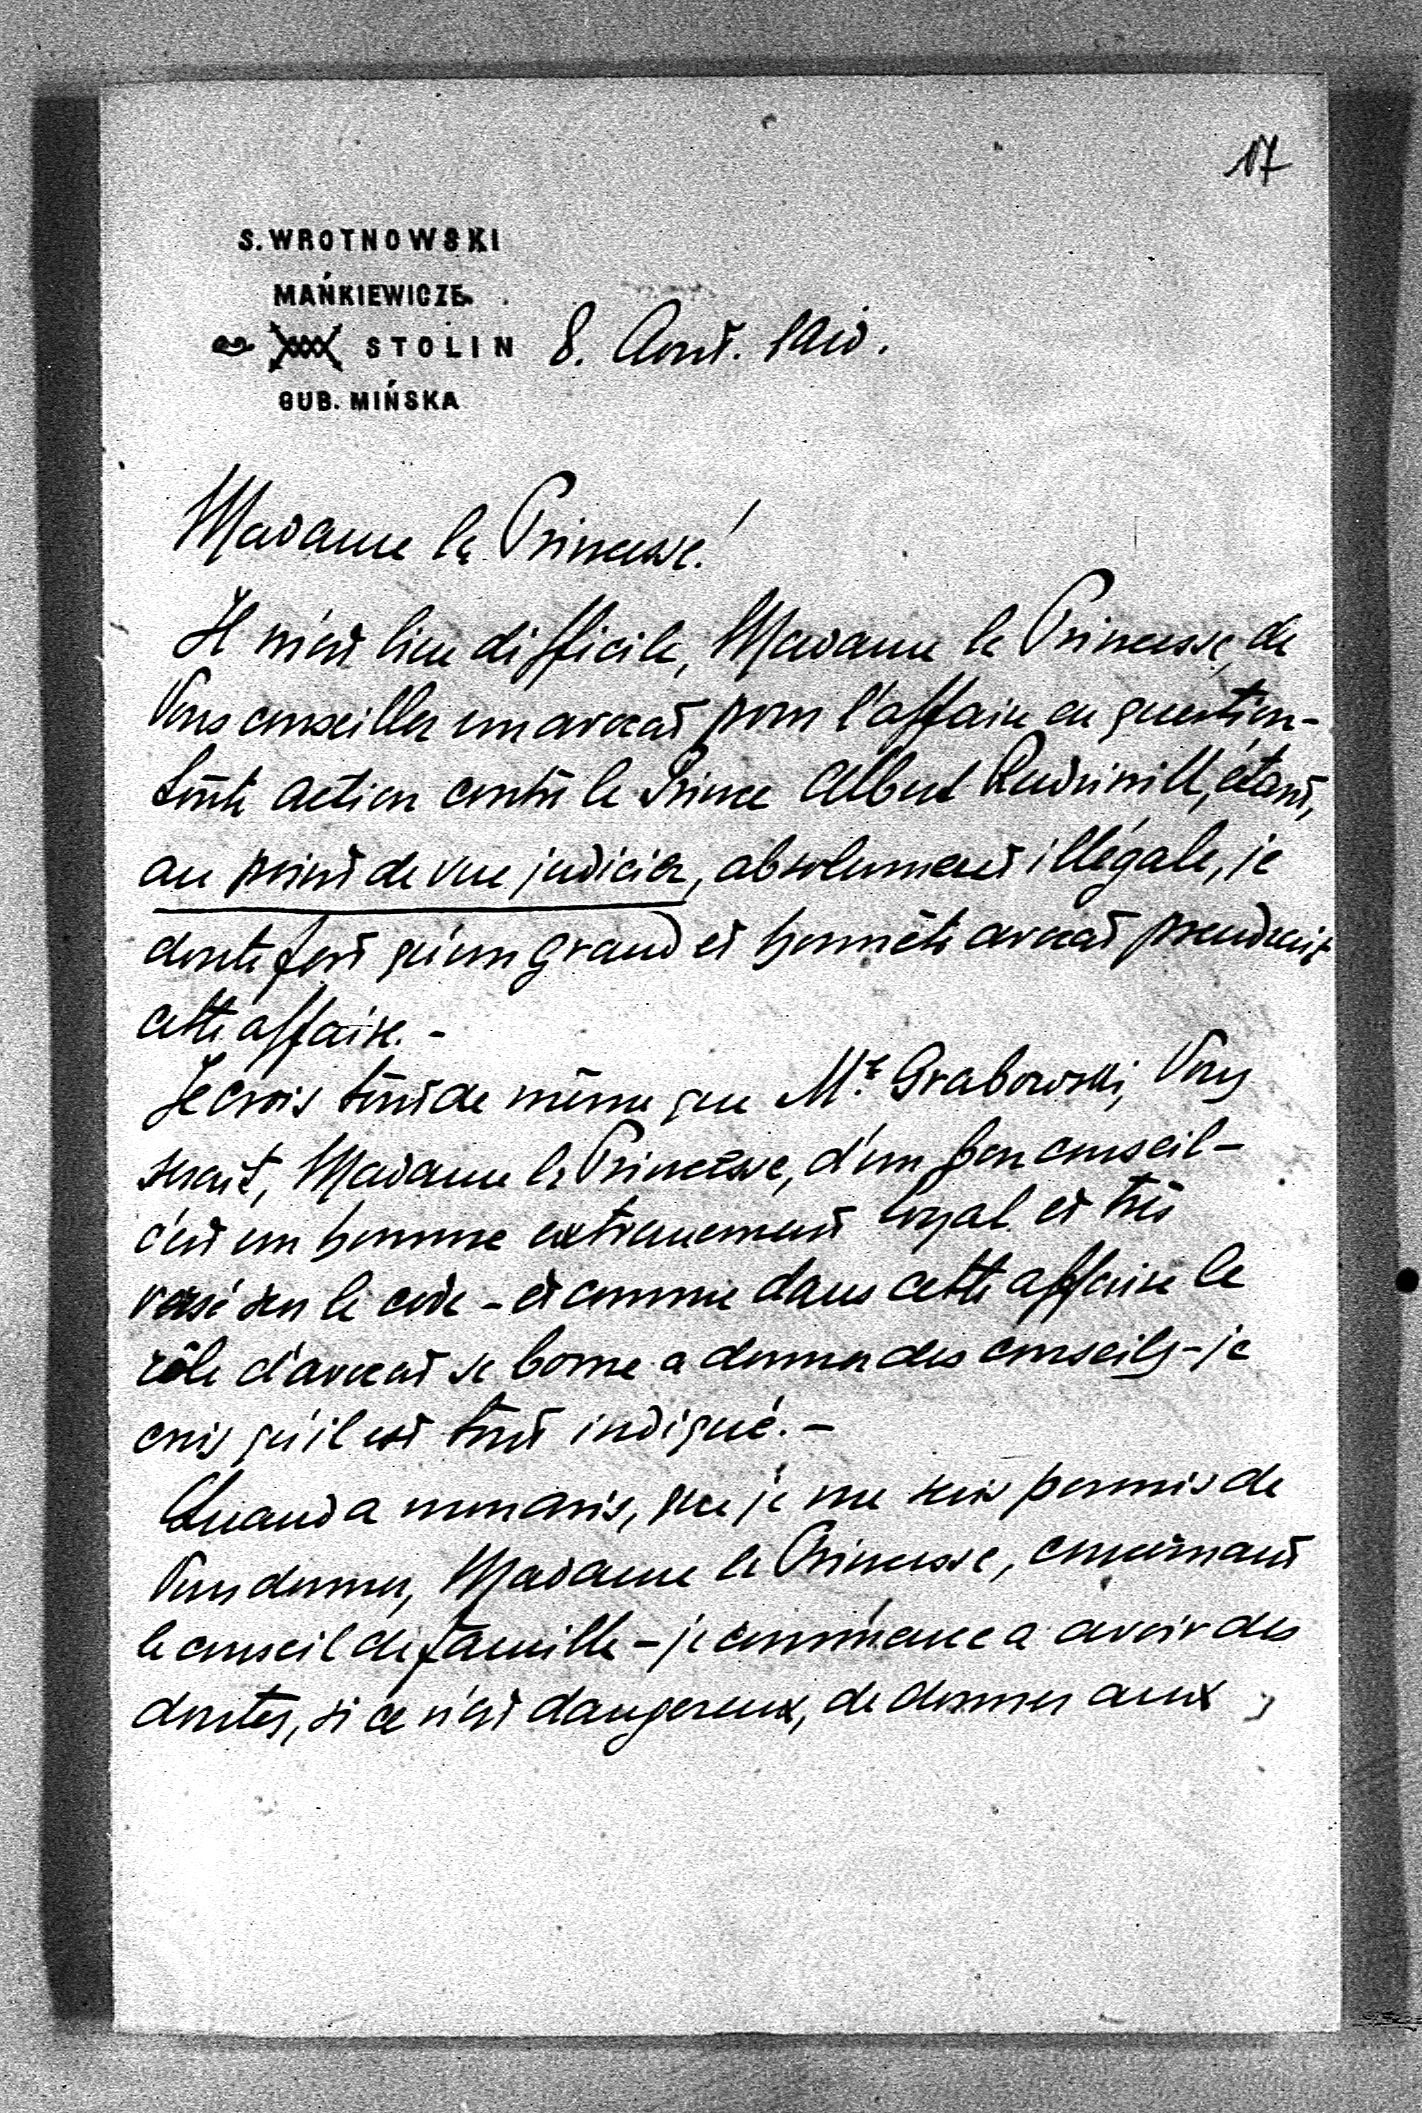 17
S. WROTNOWSKI
MAŃKIEWICZE
STOLIN 8. Aout. 1910.
GUB. MIŃSKA
Madame la Princesse!
Il m'est bien difficile, Madame la Princesse, de
Vous conseiller un avocat pour l'affaire en question-
toute action contre le Prince Albert Radziwill, étant,
au point de vue judicier, absolument illégale, je
doute fort qu'un grand et honnête avocat prendrait
cette affaire. -
Je crois tout de même que Mr. Grabowski, Vous
serait, Madame la Princesse, d'un bon conseil -
c'est un homme extremement loyal et très
versé sur le code - et comme dans cette affaire le
rôle d'avocat se borne a donner des conseils - je
crois qu'il est tout indiqué. -
Quand a mon avis, que je me suis permis de
Vous donner, Madame la Princesse, concernant
le conseil de famille - je commence a avoir des
doutes, si ce n'est dangereux, de donner aux